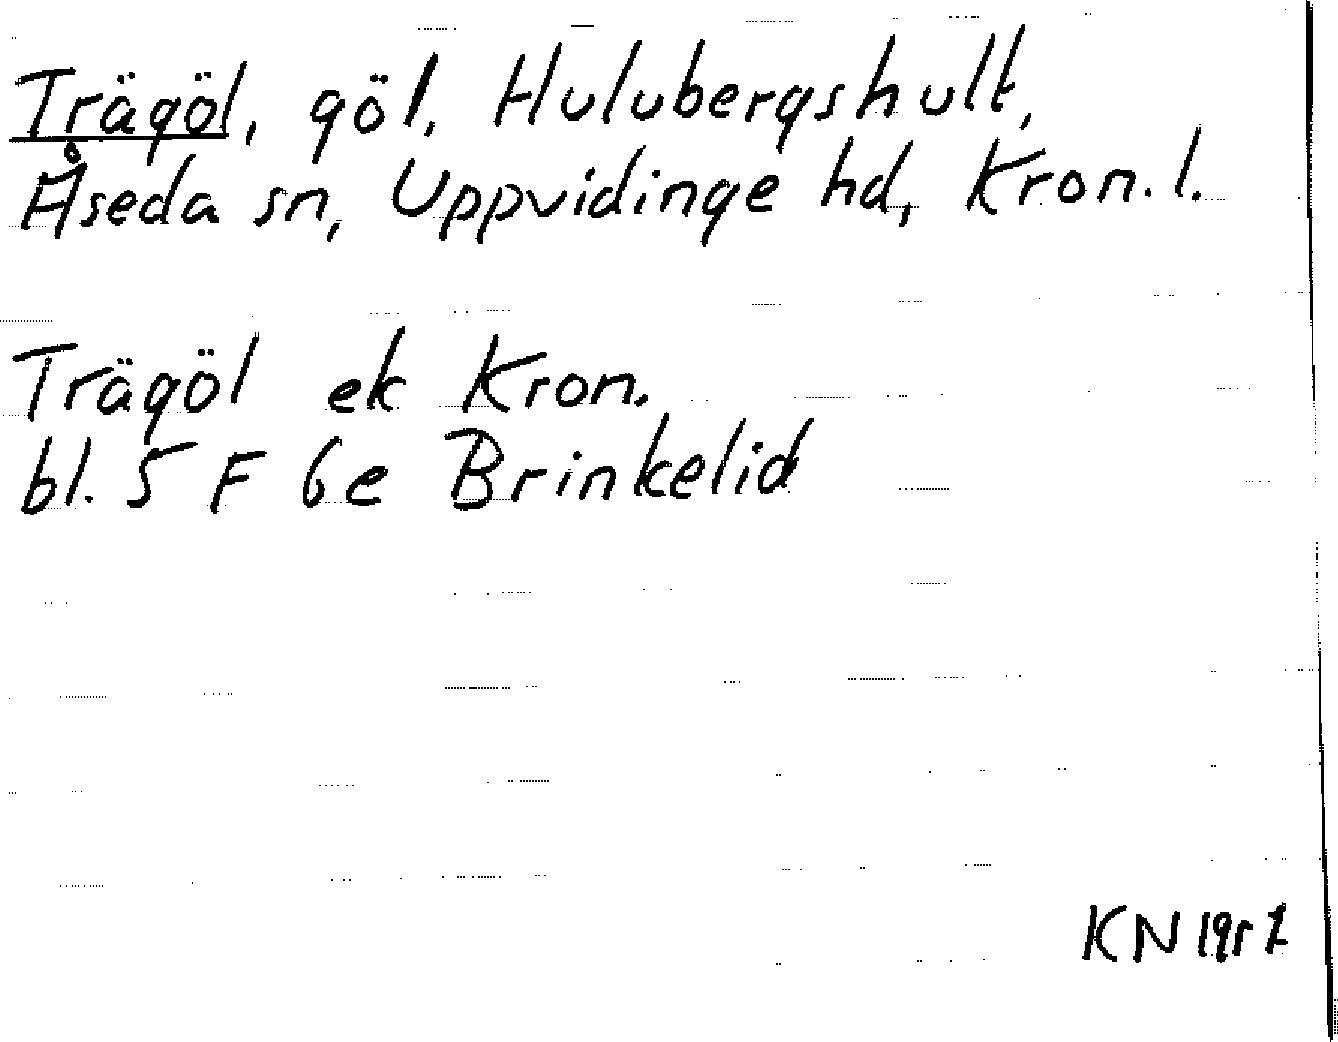 Trägöl, göl, Hulubergshult,
Åseda sn, Uppvidinge hd, Kron. l.
Trägöl ek Kron.
bl. 5 F 6e Brinkelid
KN 1957